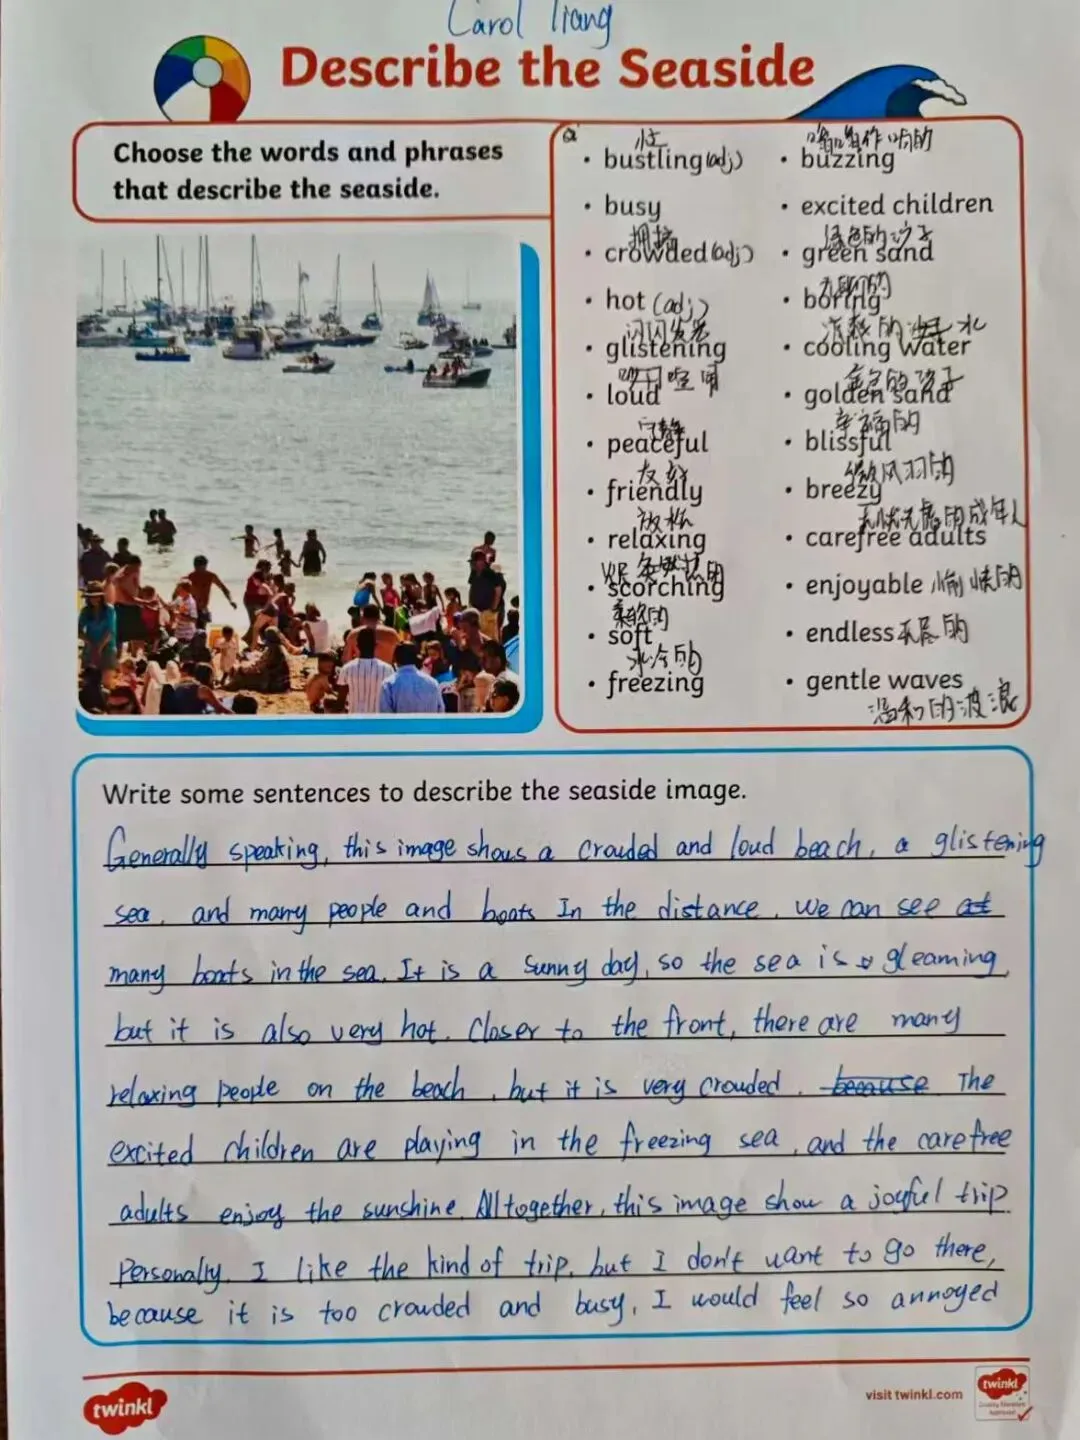 Carol Liang
Describe the Seaside
Choose the words and phrases
that describe the seaside.
忙
bustling (adj)
busy
拥挤
crowded (adj)
hot (adj)
闪闪发光
glistening
loud
宁静
peaceful
友好
friendly
放松
relaxing
scorching
柔软的
soft
冰冷的
freezing
嗡嗡作响的
buzzing
excited children
绿色的沙子
green sand
无聊的
boring
水
cooling water
金色的沙子
golden sand
幸福的
blissful
breezy
无忧无虑的成年人
carefree adults
enjoyable 愉快的
endless 无尽的
gentle waves
温和的波浪
Write some sentences to describe the seaside image.
Generally speaking, this image shows a crowded and loud beach, a glistening
sea, and many people and boats In the distance, we can see at
many boats in the sea. It is a sunny day, so the sea is gleaming,
but it is also very hot. Closer to the front, there are many
relaxing people on the beach, but it is very crowded. because The
excited children are playing in the freezing sea, and the carefree
adults enjoy the sunshine. All together, this image show a joyful trip.
Personally, I like the kind of trip, but I don't want to go there,
because it is too crowded and busy, I would feel so annoyed
twinkl
visit twinkl.com
twinkl